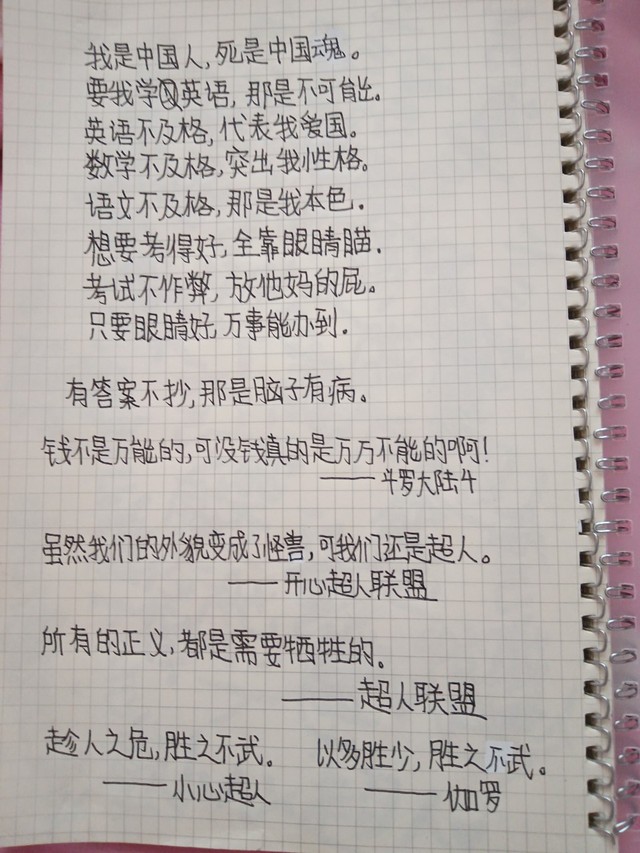 我是中国人,死是中国魂。
要我学英语,那是不可能。
英语不及格,代表我爱国。
数学不及格,突出我性格。
语文不及格,那是我本色.
想要考得好,全靠眼睛瞄.
考试不作弊,放他妈的屁。
只要眼睛好,万事能办到.
有答案不抄,那是脑子有病。
钱不是万能的,可没钱真的是万万不能的啊!
——斗罗大陆4
虽然我们的外貌变成了怪兽,可我们还是超人。
——开心超人联盟
所有的正义,都是需要牺牲的.
——超人联盟
趁人之危,胜之不武. 以多胜少,胜之不武。
——小心超人 ——伽罗